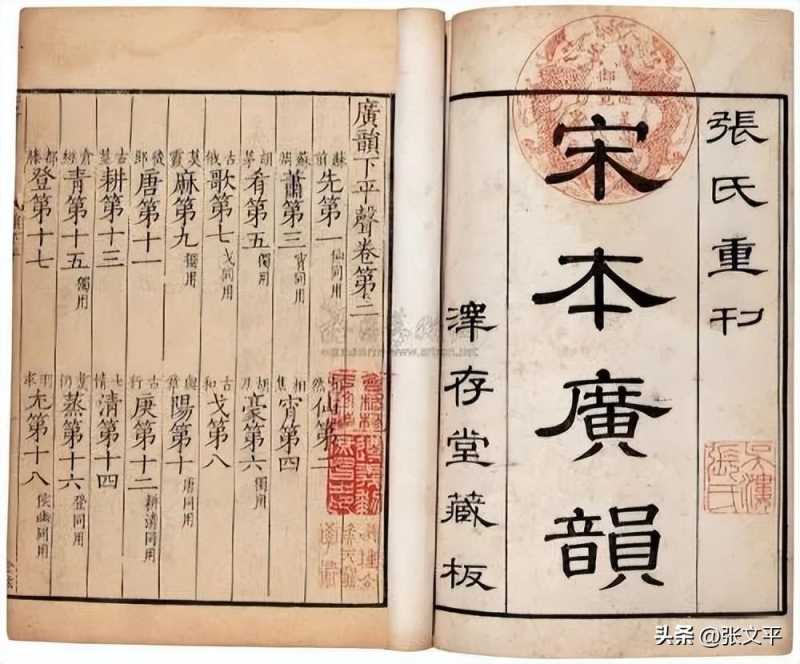 張氏重刊
宋本廣韻
澤存堂藏板
廣韻下平聲卷第二
蘇前先第一仙同用 然仙第二
蘇彫蕭第三宵同用 相焦宵第四
胡茅肴第五獨用 胡刀豪第六獨用
古俄歌第七戈同用 古和戈第八
莫霞麻第九獨用 與章陽第十唐同用
徒郎唐第十一 古行庚第十二耕清同用
古莖耕第十三 七情清第十四
倉經青第十五獨用 煑仍蒸第十六登同用
都滕登第十七 羽求尤第十八侯幽同用
头条 @张文平